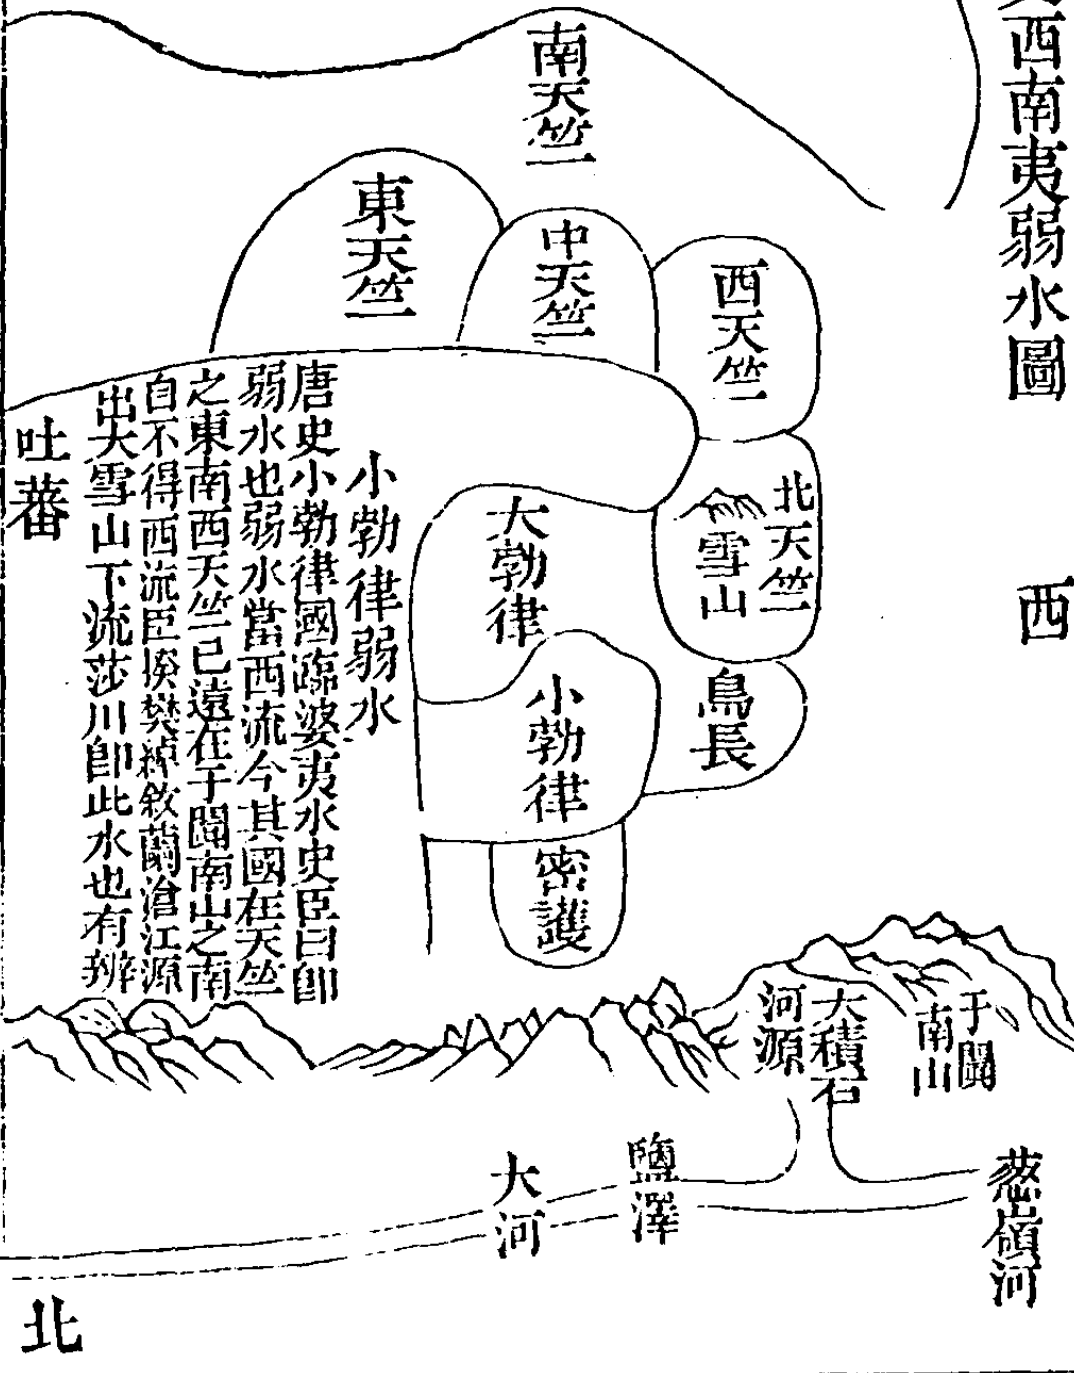 西南夷弱水圖
西
南天竺
東天竺
中天竺
西天竺
北天竺
雪山
烏長
大勃律
小勃律
密護
小勃律弱水
唐史小勃律國臨婆夷水史臣曰卽
弱水也弱水當西流今其國在天竺
之東南西天竺已遠在于闐南山之南
自不得西流臣揆樊綽敘蘭滄江源
出大雪山下流莎川卽此水也有辨
吐蕃
于闐
南山
大積石
河源
葱嶺河
鹽澤
大河
北